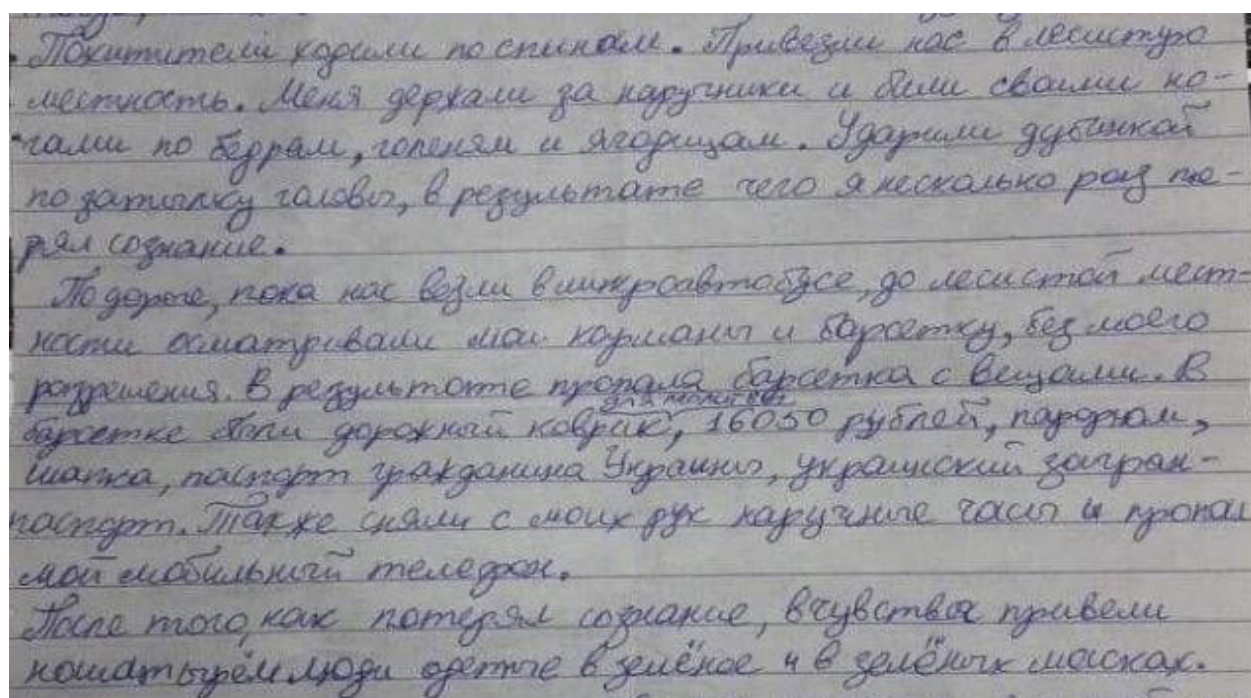 Похитители ходили по спинам. Привезли нас в лесистую
местность. Меня держали за наручники и били своими но-
гами по бедрам, голеням и ягодицам. Ударили дубинкой
по затылку головы, в результате чего я несколько раз те-
рял сознание.
По дороге, пока нас везли в микроавтобусе, до лесистой мест-
ности осматривали мои карманы и барсетку, без моего
разрешения. В результате пропала барсетка с вещами. В
для молитвы
барсетке были дорожный коврик, 16050 рублей, парфюм,
шапка, паспорт гражданина Украины, украинский загран-
паспорт. Также сняли с моих рук наручные часы и пропал
мой мобильный телефон.
После того, как потерял сознание, в чувства привели
нашатырём люди одетые в зелёное и в зелёных масках.